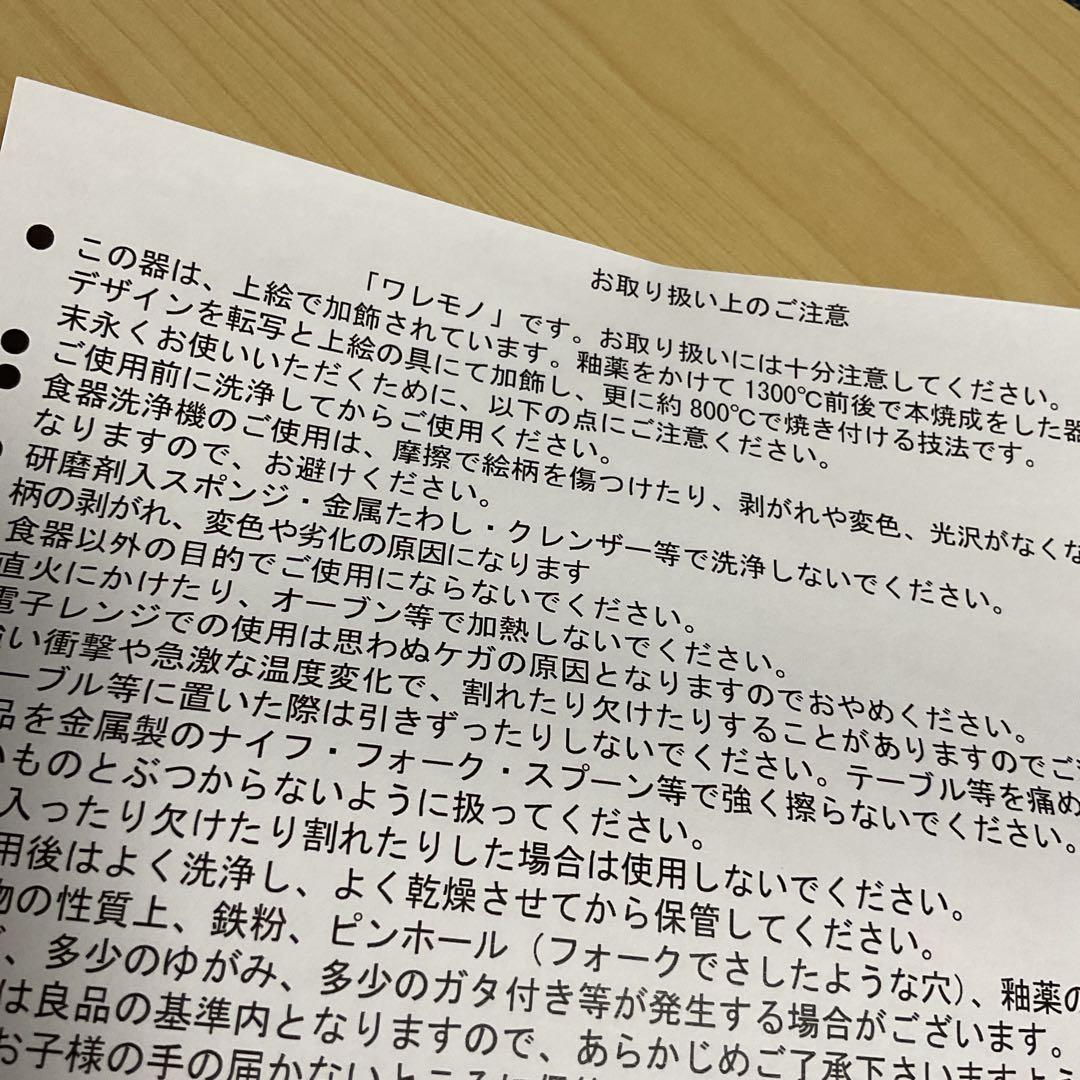 お取り扱い上のご注意
「ワレモノ」です。お取り扱いには十分注意してください。
● この器は、上絵で加飾されています。釉薬をかけて1300℃前後で本焼成をした器
デザインを転写と上絵の具にて加飾し、更に約800℃で焼き付ける技法です。
末永くお使いいただくために、以下の点にご注意ください。
● ご使用前に洗浄してからご使用ください。
● 食器洗浄機のご使用は、摩擦で絵柄を傷つけたり、剥がれや変色、光沢がなくな
なりますので、お避けください。
研磨剤入スポンジ・金属たわし・クレンザー等で洗浄しないでください。
柄の剥がれ、変色や劣化の原因になります
食器以外の目的でご使用にならないでください。
直火にかけたり、オーブン等で加熱しないでください。
電子レンジでの使用は思わぬケガの原因となりますのでおやめください。
強い衝撃や急激な温度変化で、割れたり欠けたりすることがありますのでご
ーブル等に置いた際は引きずったりしないでください。テーブル等を痛め
品を金属製のナイフ・フォーク・スプーン等で強く擦らないでください。
いものとぶつからないように扱ってください。
入ったり欠けたり割れたりした場合は使用しないでください。
用後はよく洗浄し、よく乾燥させてから保管してください。
物の性質上、鉄粉、ピンホール（フォークでさしたような穴）、釉薬の
、多少のゆがみ、多少のガタ付き等が発生する場合がございます。
は良品の基準内となりますので、あらかじめご了承下さいますよう
お子様の手の届かないところに